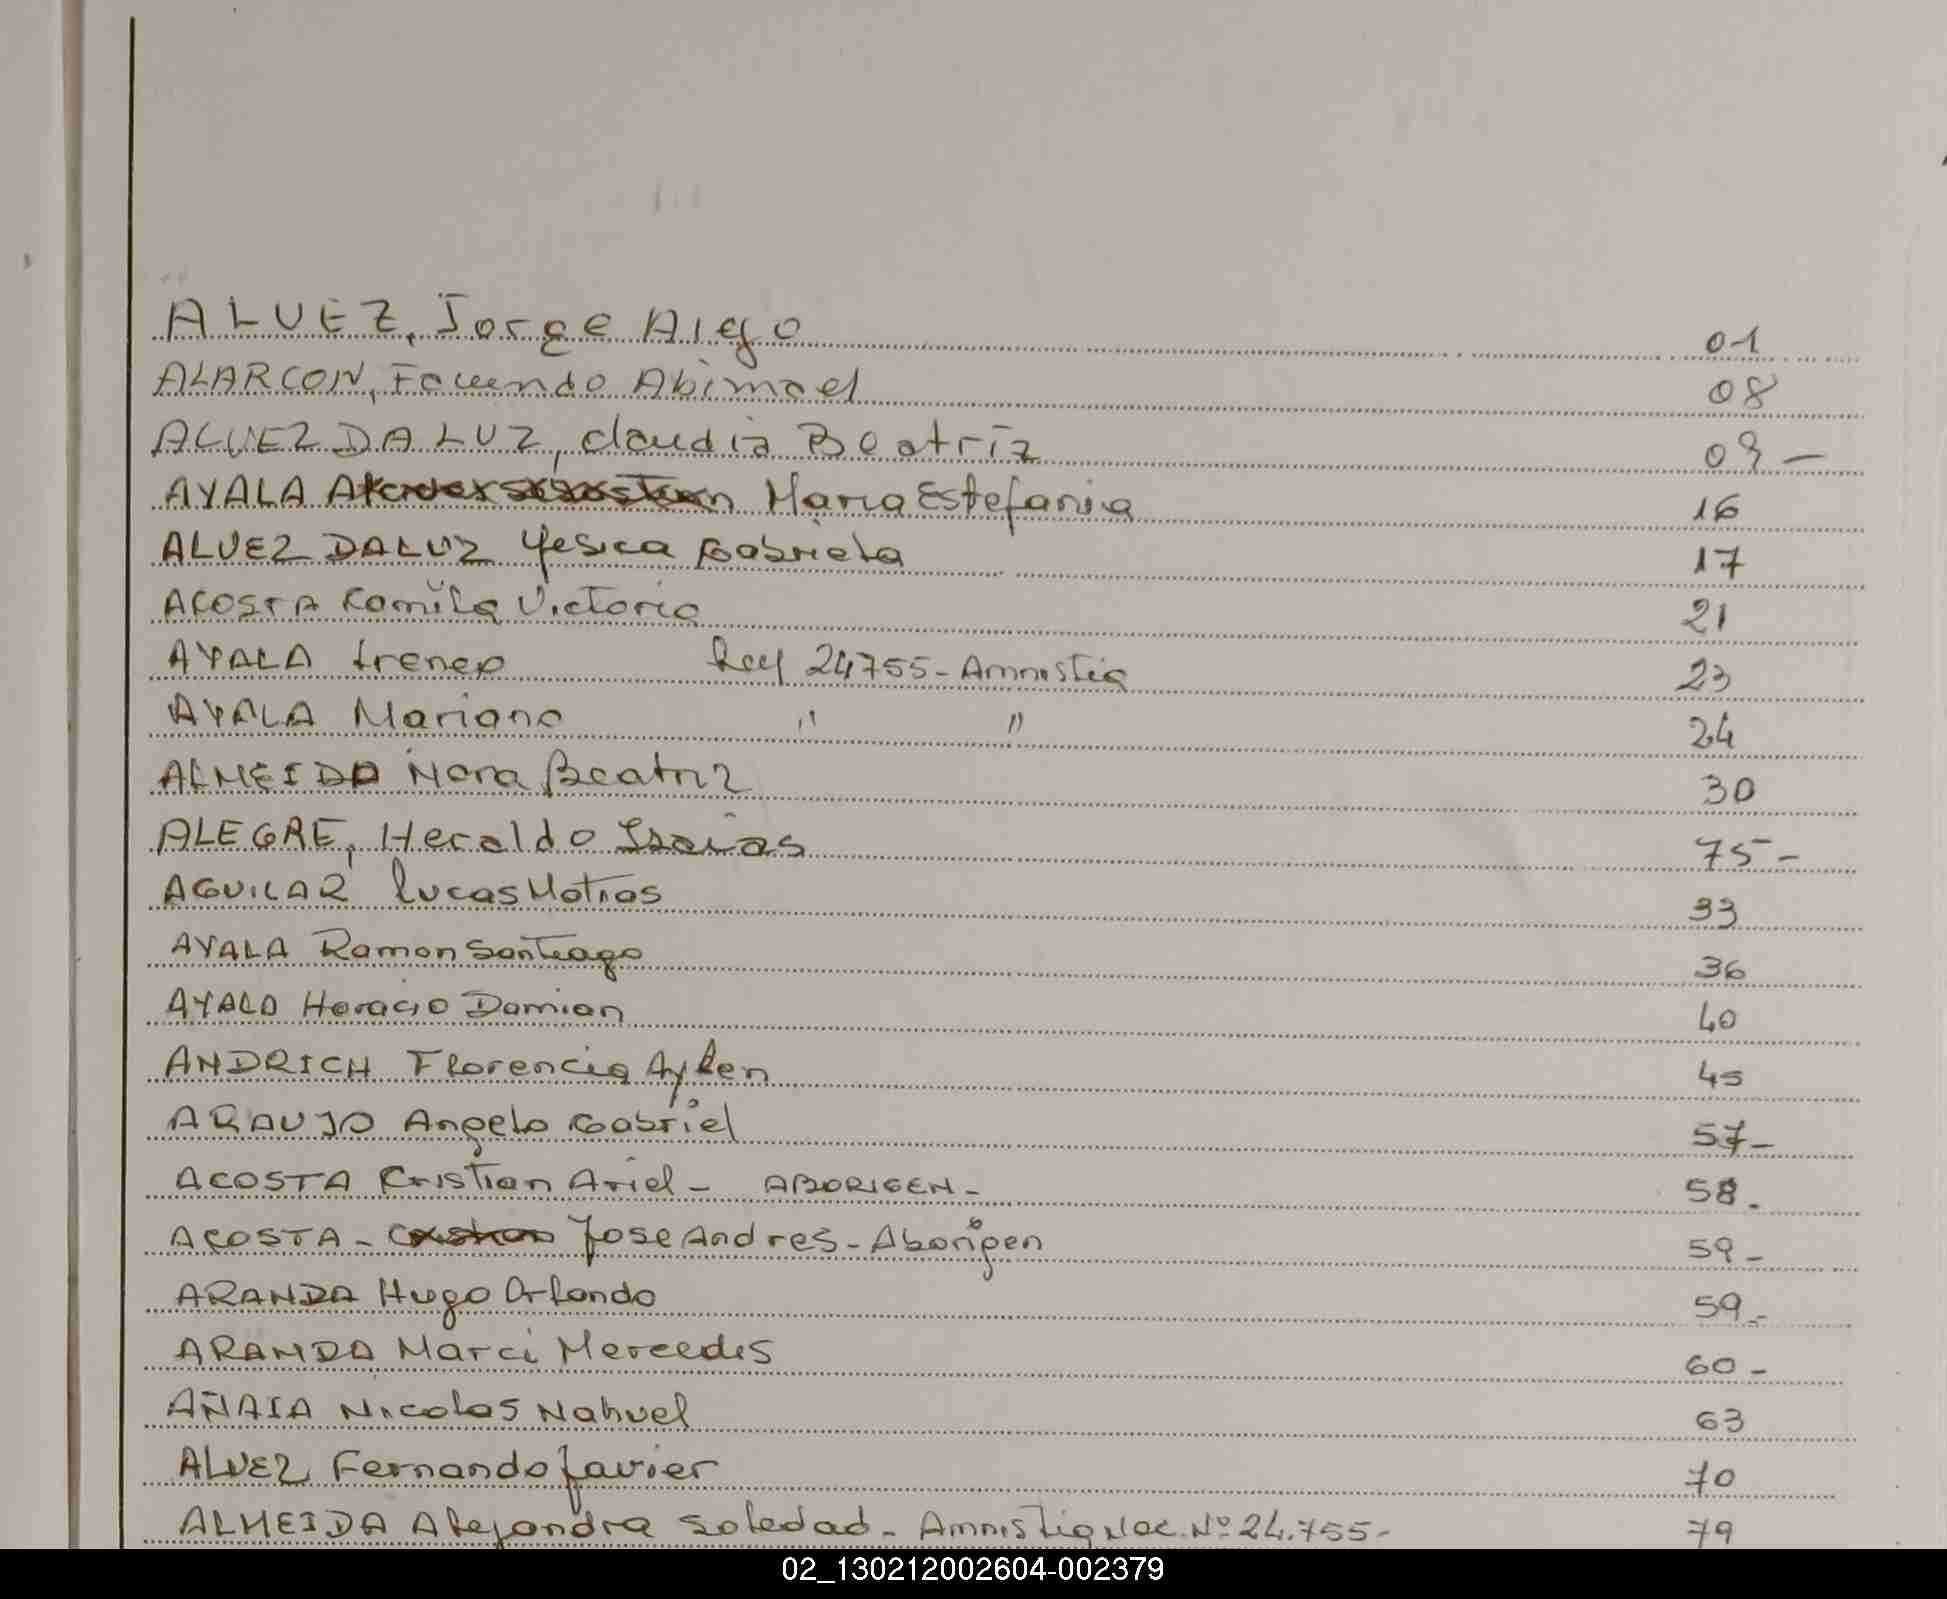 ALVEZ, Jorge Diego 01
ALARCON, Facundo Abimael 08
ALVEZ DA LUZ, claudia Beatriz 09 -
AYALA Maria Estefania 16
ALVEZ DALUZ Yesica Gabriela 17
ACOSTA Camila Victoria 21
AYALA Ireneo Ley 24755 - Amnistia 23
AYALA Mariano " " 24
ALMEIDA Nora Beatriz 30
ALEGRE, Heraldo Isaias 75 -
AGUILAR Lucas Matias 33
AYALA Ramon Santiago 36
AYALA Horacio Damian 40
ANDRICH Florencia Aylen 45
ARAUJO Angelo Gabriel 57 -
ACOSTA Cristian Ariel - ABORIGEN - 58 -
ACOSTA - Jose Andres - Aborigen 59 -
ARANDA Hugo Orlando 59 -
ARANDA Marci Mercedes 60 -
AÑAIA Nicolas Nahuel 63
ALVEZ Fernando Javier 70
ALMEIDA Alejandra Soledad - Amnistia Nac. Nº 24.755 - 79
02_130212002604-002379